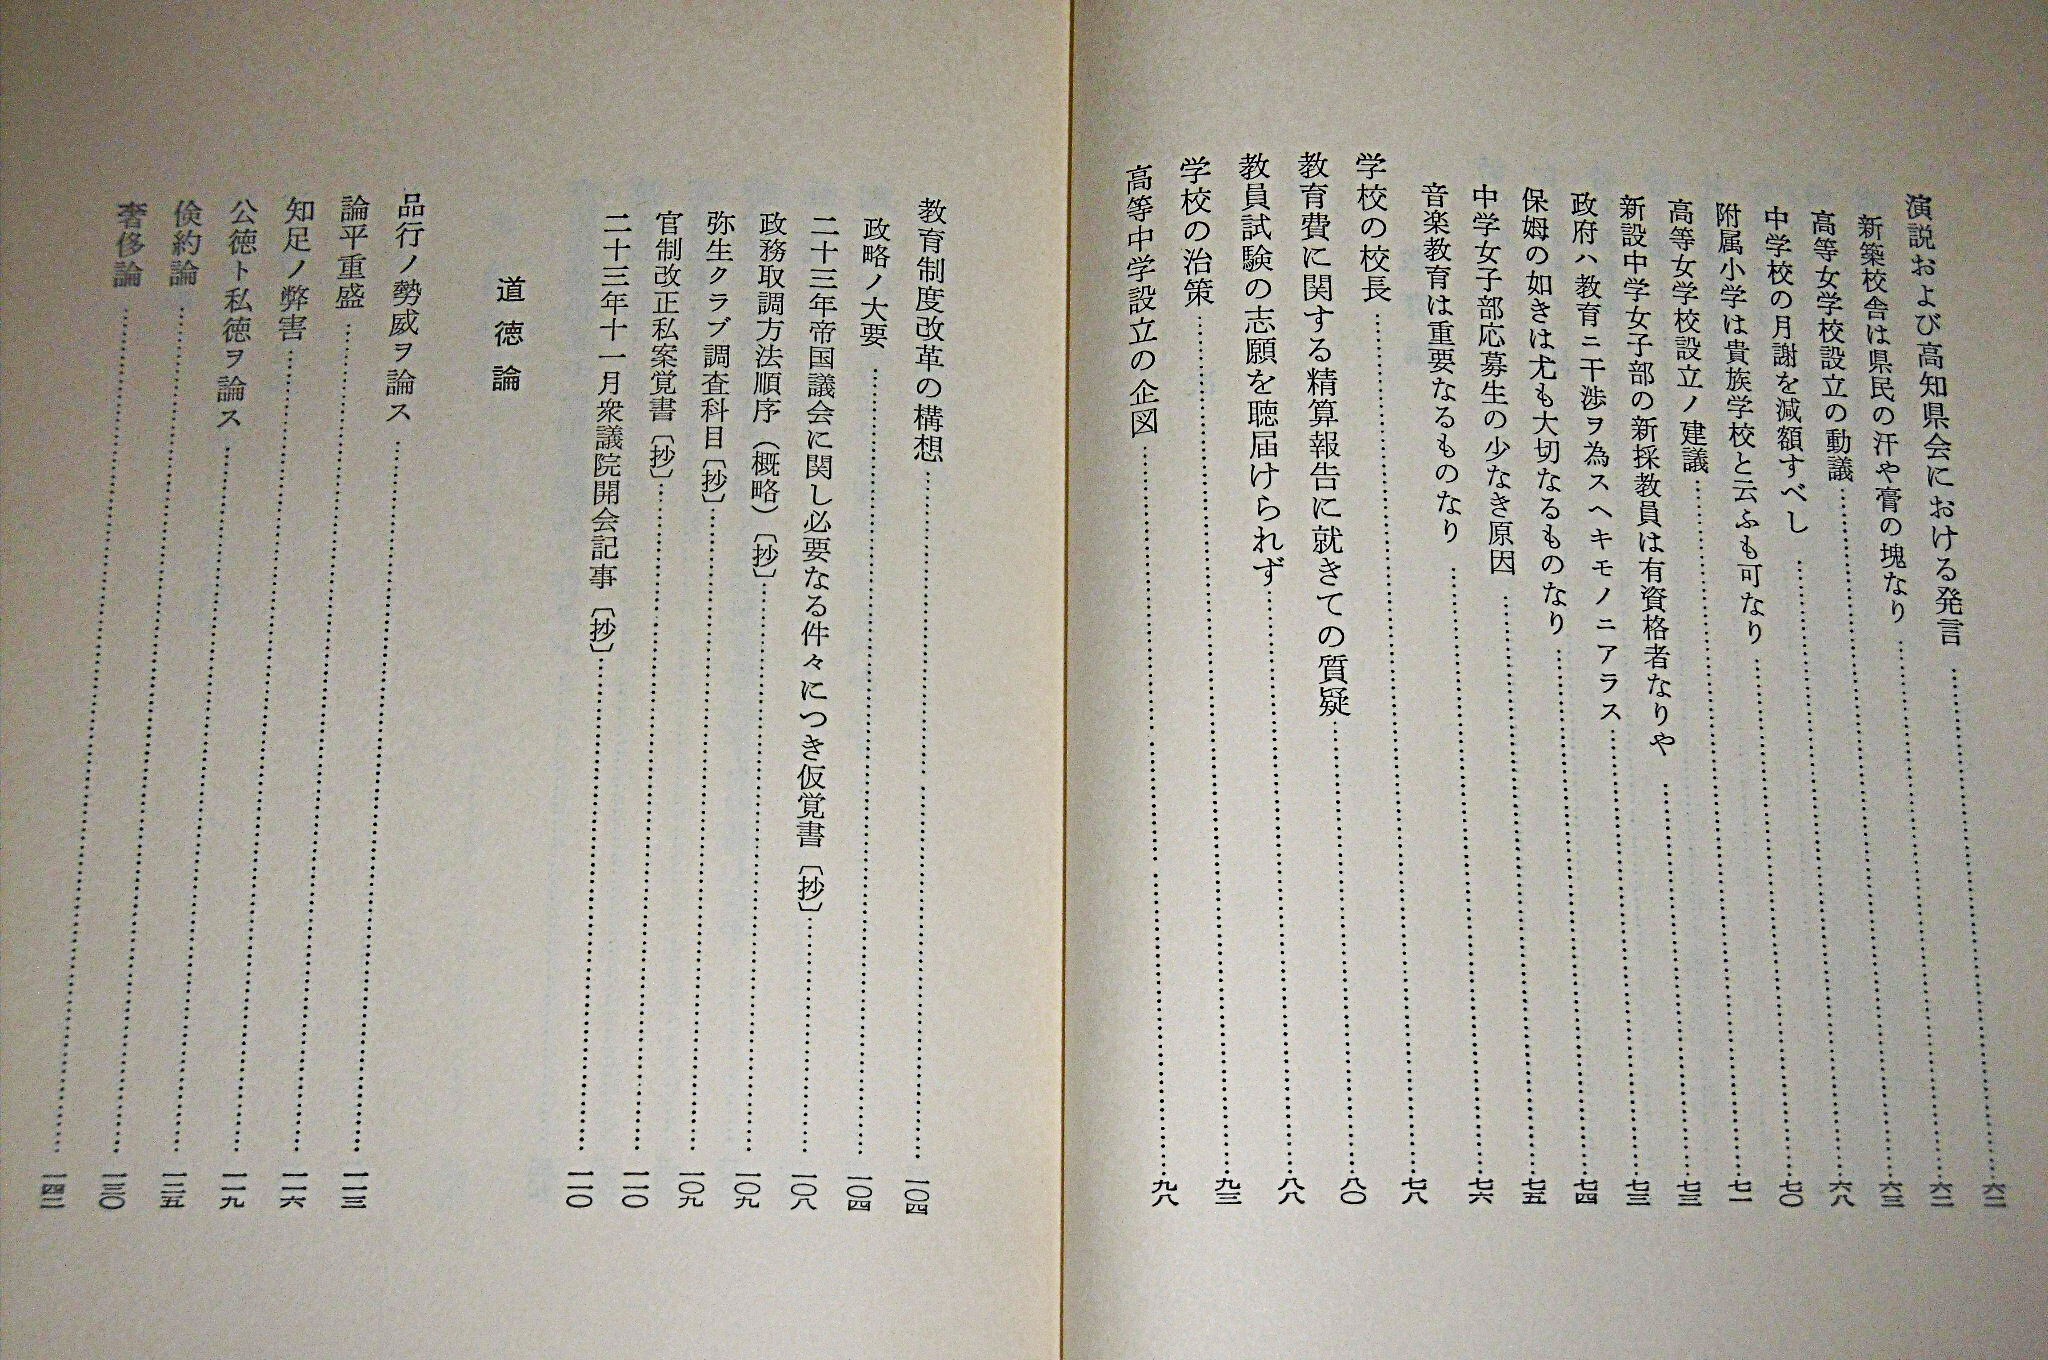 演説および高知県会における発言……六二
新築校舎は県民の汗や膏の塊なり……六二
高等女学校設立の動議……六三
中学校の月謝を減額すべし……六八
附属小学は貴族学校と云ふも可なり……七〇
高等女学校設立ノ建議……七一
新設中学女子部の新採教員は有資格者なりや……七三
政府ハ教育ニ干渉ヲ為スヘキモノニアラス……七三
保姆の如きは尤も大切なるものなり……七四
中学女子部応募生の少なき原因……七五
音楽教育は重要なるものなり……七六
学校の校長……七八
教育費に関する精算報告に就きての質疑……八〇
教員試験の志願を聴届けられず……八八
学校の治策……九三
高等中学設立の企図……九八
教育制度改革の構想……一〇四
政略ノ大要……一〇四
二十三年帝国議会に関し必要なる件々につき仮覚書〔抄〕……一〇八
政務取調方法順序（概略）〔抄〕……一〇九
弥生クラブ調査科目〔抄〕……一〇九
官制改正私案覚書〔抄〕……一一〇
二十三年十一月衆議院開会記事〔抄〕……一一〇
道徳論
品行ノ勢威ヲ論ス……一一三
論平重盛……一一六
知足ノ弊害……一一九
公徳ト私徳ヲ論ス……一二五
倹約論……一三〇
奢侈論……一四二